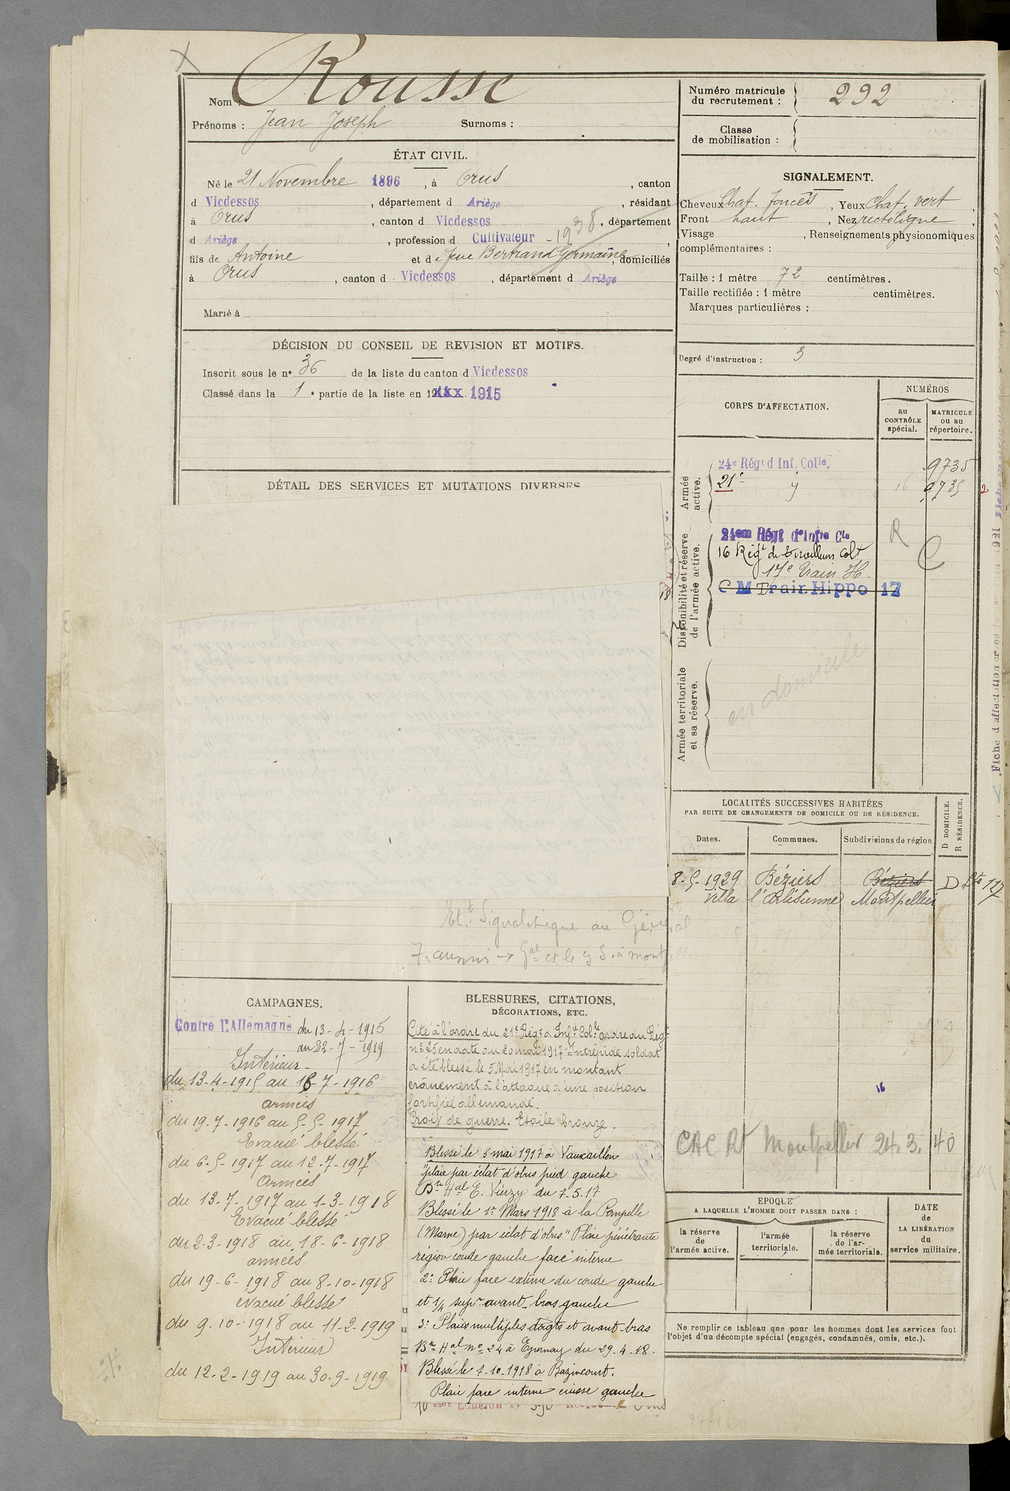 Nom : Rousse
Prénoms : Jean Joseph Surnoms :
ÉTAT CIVIL.
Né le 21 Novembre 1896, à Orus, canton
d Vicdessos, département d Ariège, résidant
à Orus, canton d Vicdessos, département
d Ariège, profession d Cultivateur - 1938
fils de Antoine et de feue Bertrand Germaine, domiciliés
à Orus, canton d Vicdessos, département d Ariège
Marié à
DÉCISION DU CONSEIL DE REVISION ET MOTIFS.
Inscrit sous le n° 36 de la liste du canton d Vicdessos
Classé dans la 1e partie de la liste en 19xxx 1915
DÉTAIL DES SERVICES ET MUTATIONS DIVERSES
Numéro matricule
du recrutement : 292
Classe
de mobilisation :
SIGNALEMENT.
Cheveux Chat. foncés, Yeux Chat. vert,
Front haut, Nez rectiligne,
Visage , Renseignements physionomiques
complémentaires :
Taille : 1 mètre 72 centimètres.
Taille rectifiée : 1 mètre centimètres.
Marques particulières :
Degré d'instruction : 3
CORPS D'AFFECTATION.
NUMÉROS
au
CONTRÔLE
spécial.
MATRICULE
ou au
répertoire.
Armée
active.
24e Régt d Inf. Colle. 9735
21e 16 9735 2
Disponibilité et réserve
de l'armée active.
24em Régt d'Infie Cle
16 Régt de Tirailleurs Colx
17e Train H.
C M Train Hippo 17
R
C
Armée territoriale
et sa réserve.
en domicile
LOCALITÉS SUCCESSIVES HABITÉES
PAR SUITE DE CHANGEMENTS DE DOMICILE OU DE RÉSIDENCE.
Dates.
Communes.
Subdivisions de région
D DOMICILE.
R RÉSIDENCE.
8-5-1929 Béziers Béziers D
Villa l'Arlésienne Montpellier
Ett. Signaletique au Général
CAMPAGNES.
Contre l'Allemagne du 13-4-1915
au 22-7-1919
Intérieur
du 13-4-1915 au 18-7-1916
armées
du 19-7-1916 au 5-5-1917
Evacué blessé
du 6-5-1917 au 12-7-1917
armées
du 13-7-1917 au 1-3-1918
Evacué blessé
du 2-3-1918 au 18-6-1918
armées
du 19-6-1918 au 8-10-1918
evacué blessé
du 9-10-1918 au 11-2-1919
Intérieur
du 12-2-1919 au 30-9-1919
BLESSURES, CITATIONS,
DÉCORATIONS, ETC.
Cité à l'ordre du 21e Régt d'Infrie Colle ordre du Régt
n° 25 en date du 20 mai 1917 Intrépide soldat
a été blessé le 5 Mai 1917 en montant
crânement à l'attaque d'une position
fortifiée allemande.
Croix de guerre. Etoile bronze.
Blessé le 5 mai 1917 à Vauxaillon
"plaie par éclat d'obus pied gauche
Bn Hal E. Vierzy du 7.5.17
Blessé le 1er Mars 1918 à la Pompelle
(Marne) par éclat d'obus "Plaie pénétrante
région coude gauche face interne
2° Plaie face externe du coude gauche
et 1/4 supr avant-bras gauche
3° Plaies multiples doigts et avant-bras
Bn Hal n° 24 à Epernay du 29.4.18.
Blessé le 7.10.1918 à Bazincourt.
Plaie face interne cuisse gauche
16
CAC R/ Montpellier 24.3.40
EPOQUE
A LAQUELLE L'HOMME DOIT PASSER DANS :
la réserve
de
l'armée active.
l'armée
territoriale.
la réserve
de l'ar-
mée territoriale.
DATE
de
LA LIBÉRATION
du
service militaire.
Ne remplir ce tableau que pour les hommes dont les services font
l'objet d'un décompte spécial (engagés, condamnés, omis, etc.).